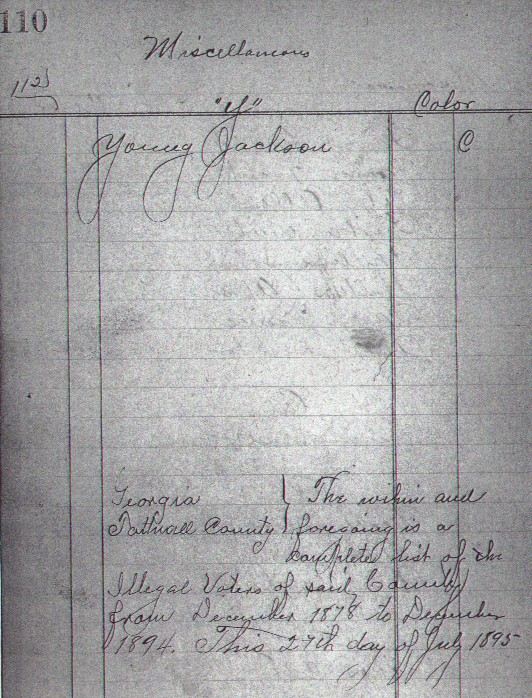 110
Miscellaneous
112
"Y" Color
Young Jackson C
Georgia } The within and
Tattnall County } foregoing is a
complete list of the
Illegal Voters of said County
from December 1878 to December
1894. This 27th day of July 1895